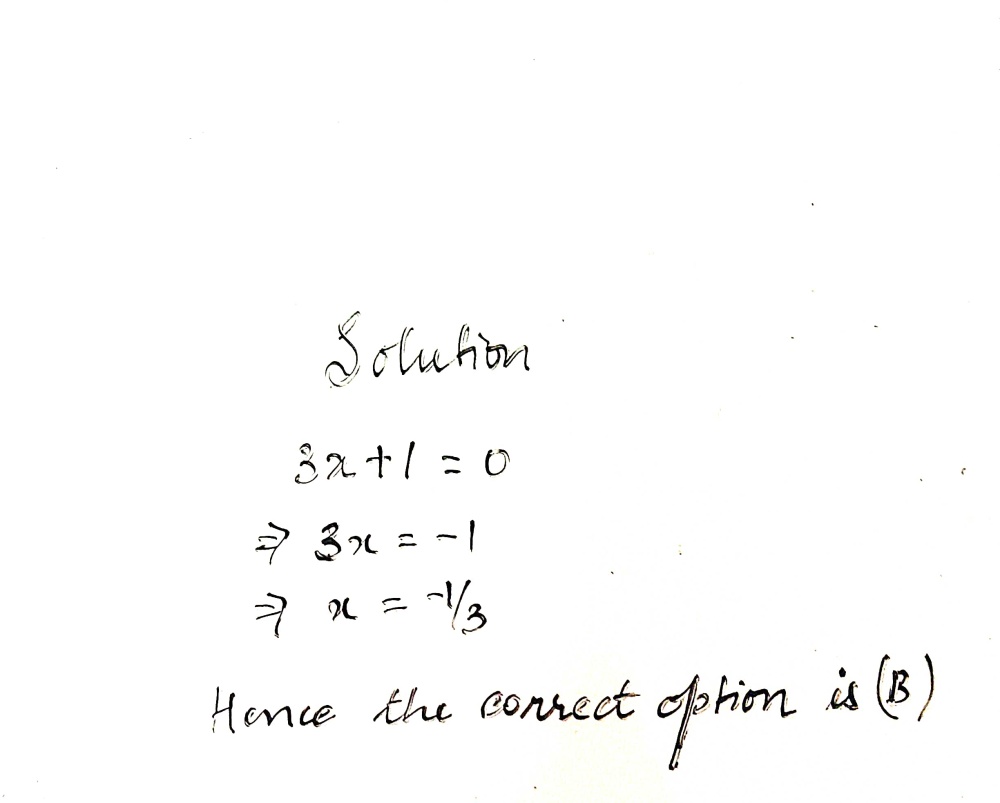 Solution
3x+1=0
⇒ 3x = -1
⇒ x = -1/3
Hence the correct option is (B)